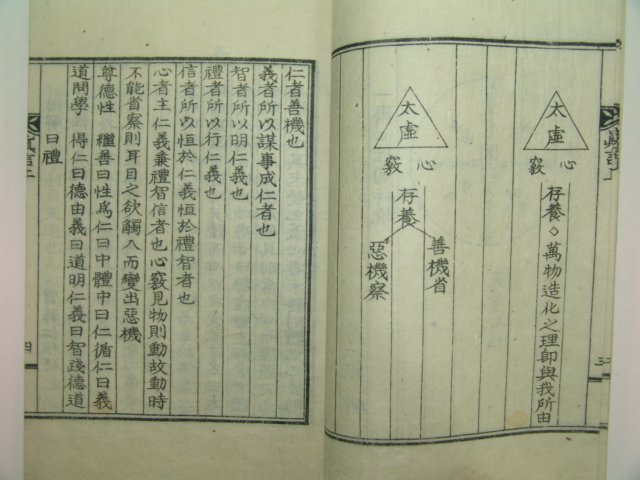 太虛
心竅
存養◇萬物造化之理卽與我所由
太虛
心竅
存養
善機省
惡機察
三
仁者善機也
義者所以謀事成仁者也
智者所以明仁義也
禮者所以行仁義也
信者所以恒於仁義恒於禮智者也
心者主仁義兼禮智信者也心竅見物則動故動時
不能省察則耳目之欲觸入而變出惡機
尊德性 繼善曰性爲仁曰中體中曰仁循仁曰義
道問學 得仁曰德由義曰道明仁義曰智踐德道
曰禮
四